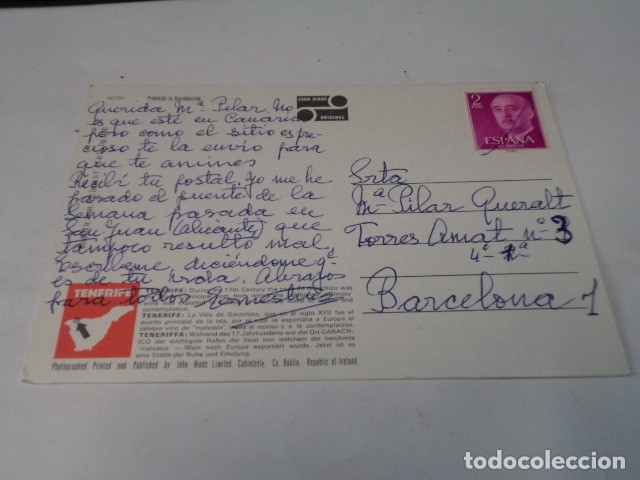 Prohibida la Reproducción
JOHN HINDE
ORIGINAL
Querida Mª Pilar. No
es que esté en Canarias
pero como el sitio es pre-
cioso te la envío para
que te animes
Recibí tu postal. Yo me he
pasado el puente de la
semana pasada en
San Juan (Alicante) que
tampoco resultó mal.
Escríbeme, diciéndome q
es de tu vida. Abrazos
para todos
2
PTAS
ESPAÑA
Srta
Mª Pilar Queralt
Torres Amat nº 3
4º 1ª
Barcelona 1
TENERIFE
17th Century the
was
contemplation.
TENERIFE: La Villa de Garachico, que en el siglo XVII fue el
puerto principal de la isla, por el cual se exportaba a Europa el
célebre vino de "malvasia", invita al reposo y a la contemplación.
TENERIFFA: Während des 17. Jahrhunderts war der Ort GARACH-
ICO der wichtigste Hafen der Insel von welchem der berühmte
"malvasia" — Wein nach Europa exportiert wurde. Jetzt ist es
eine Stätte der Ruhe und Erholung.
Photographed, Printed and Published by John Hinde Limited, Cabinteely, Co. Dublin, Republic of Ireland.
todocoleccion.net